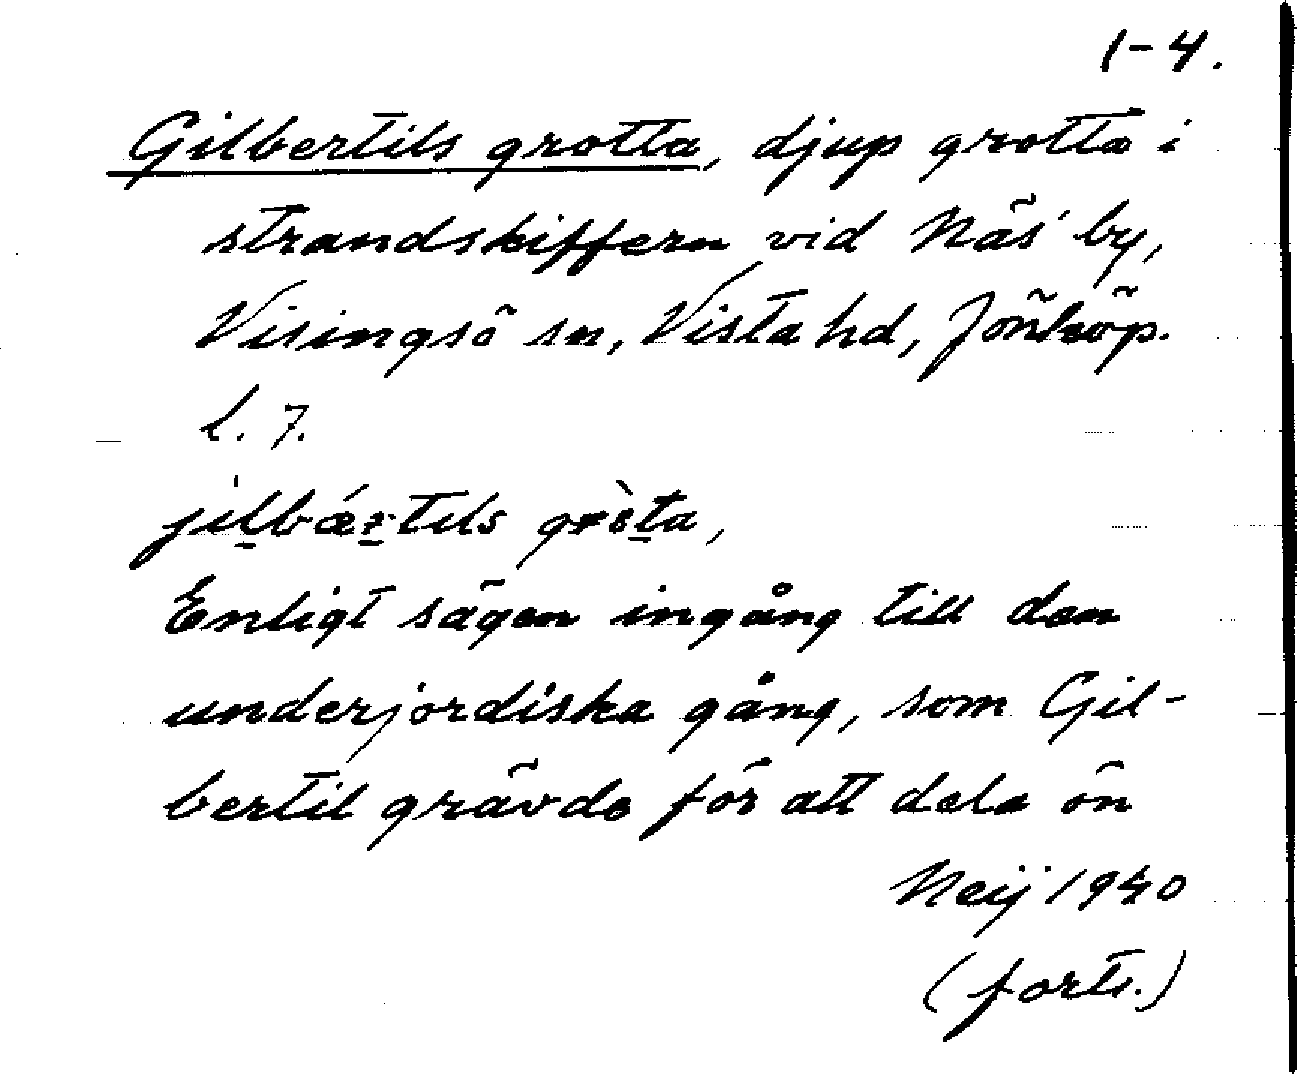 1-4.
Gilbertils grotta, djup grotta i
strandskiffern vid Näs by,
Visingsö sn, Vista hd, Jönköp.
l. 7.
Enligt sägen ingång till den
underjordiska gång, som Gil-
bertil grävde för att dela ön
Neij 1940
(forts.)